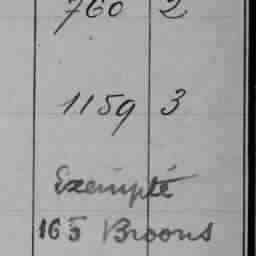 760 2
1159 3
Exempté
165 Broons